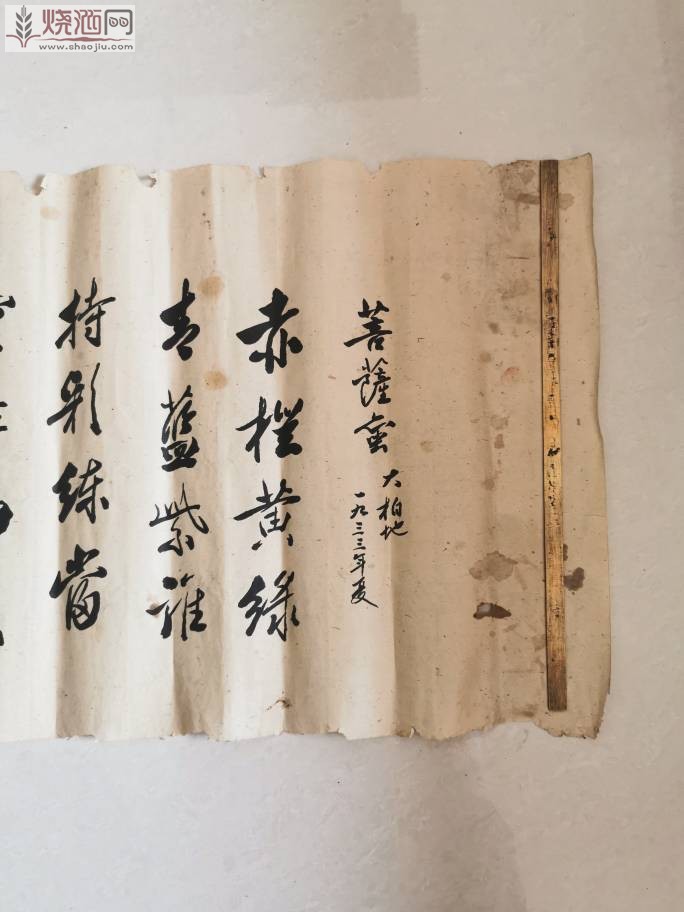 烧酒网
www.shaojiu.com
菩薩蛮
大柏地
一九三三年夏
赤橙黄綠
青藍紫誰
持彩練當